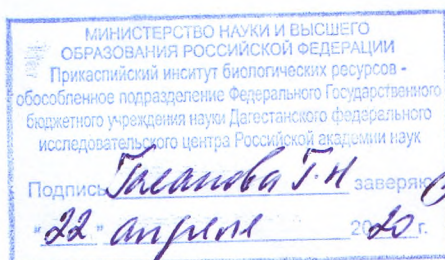 МИНИСТЕРСТВО НАУКИ И ВЫСШЕГО
ОБРАЗОВАНИЯ РОССИЙСКОЙ ФЕДЕРАЦИИ
Прикаспийский инситут биологических ресурсов -
обособленное подразделение Федерального Государственного
бюджетного учреждения науки Дагестанского федерального
исследовательского центра Российской академии наук
Подпись Гасанова Г.Н заверяю
"22" апреля 2020 г.